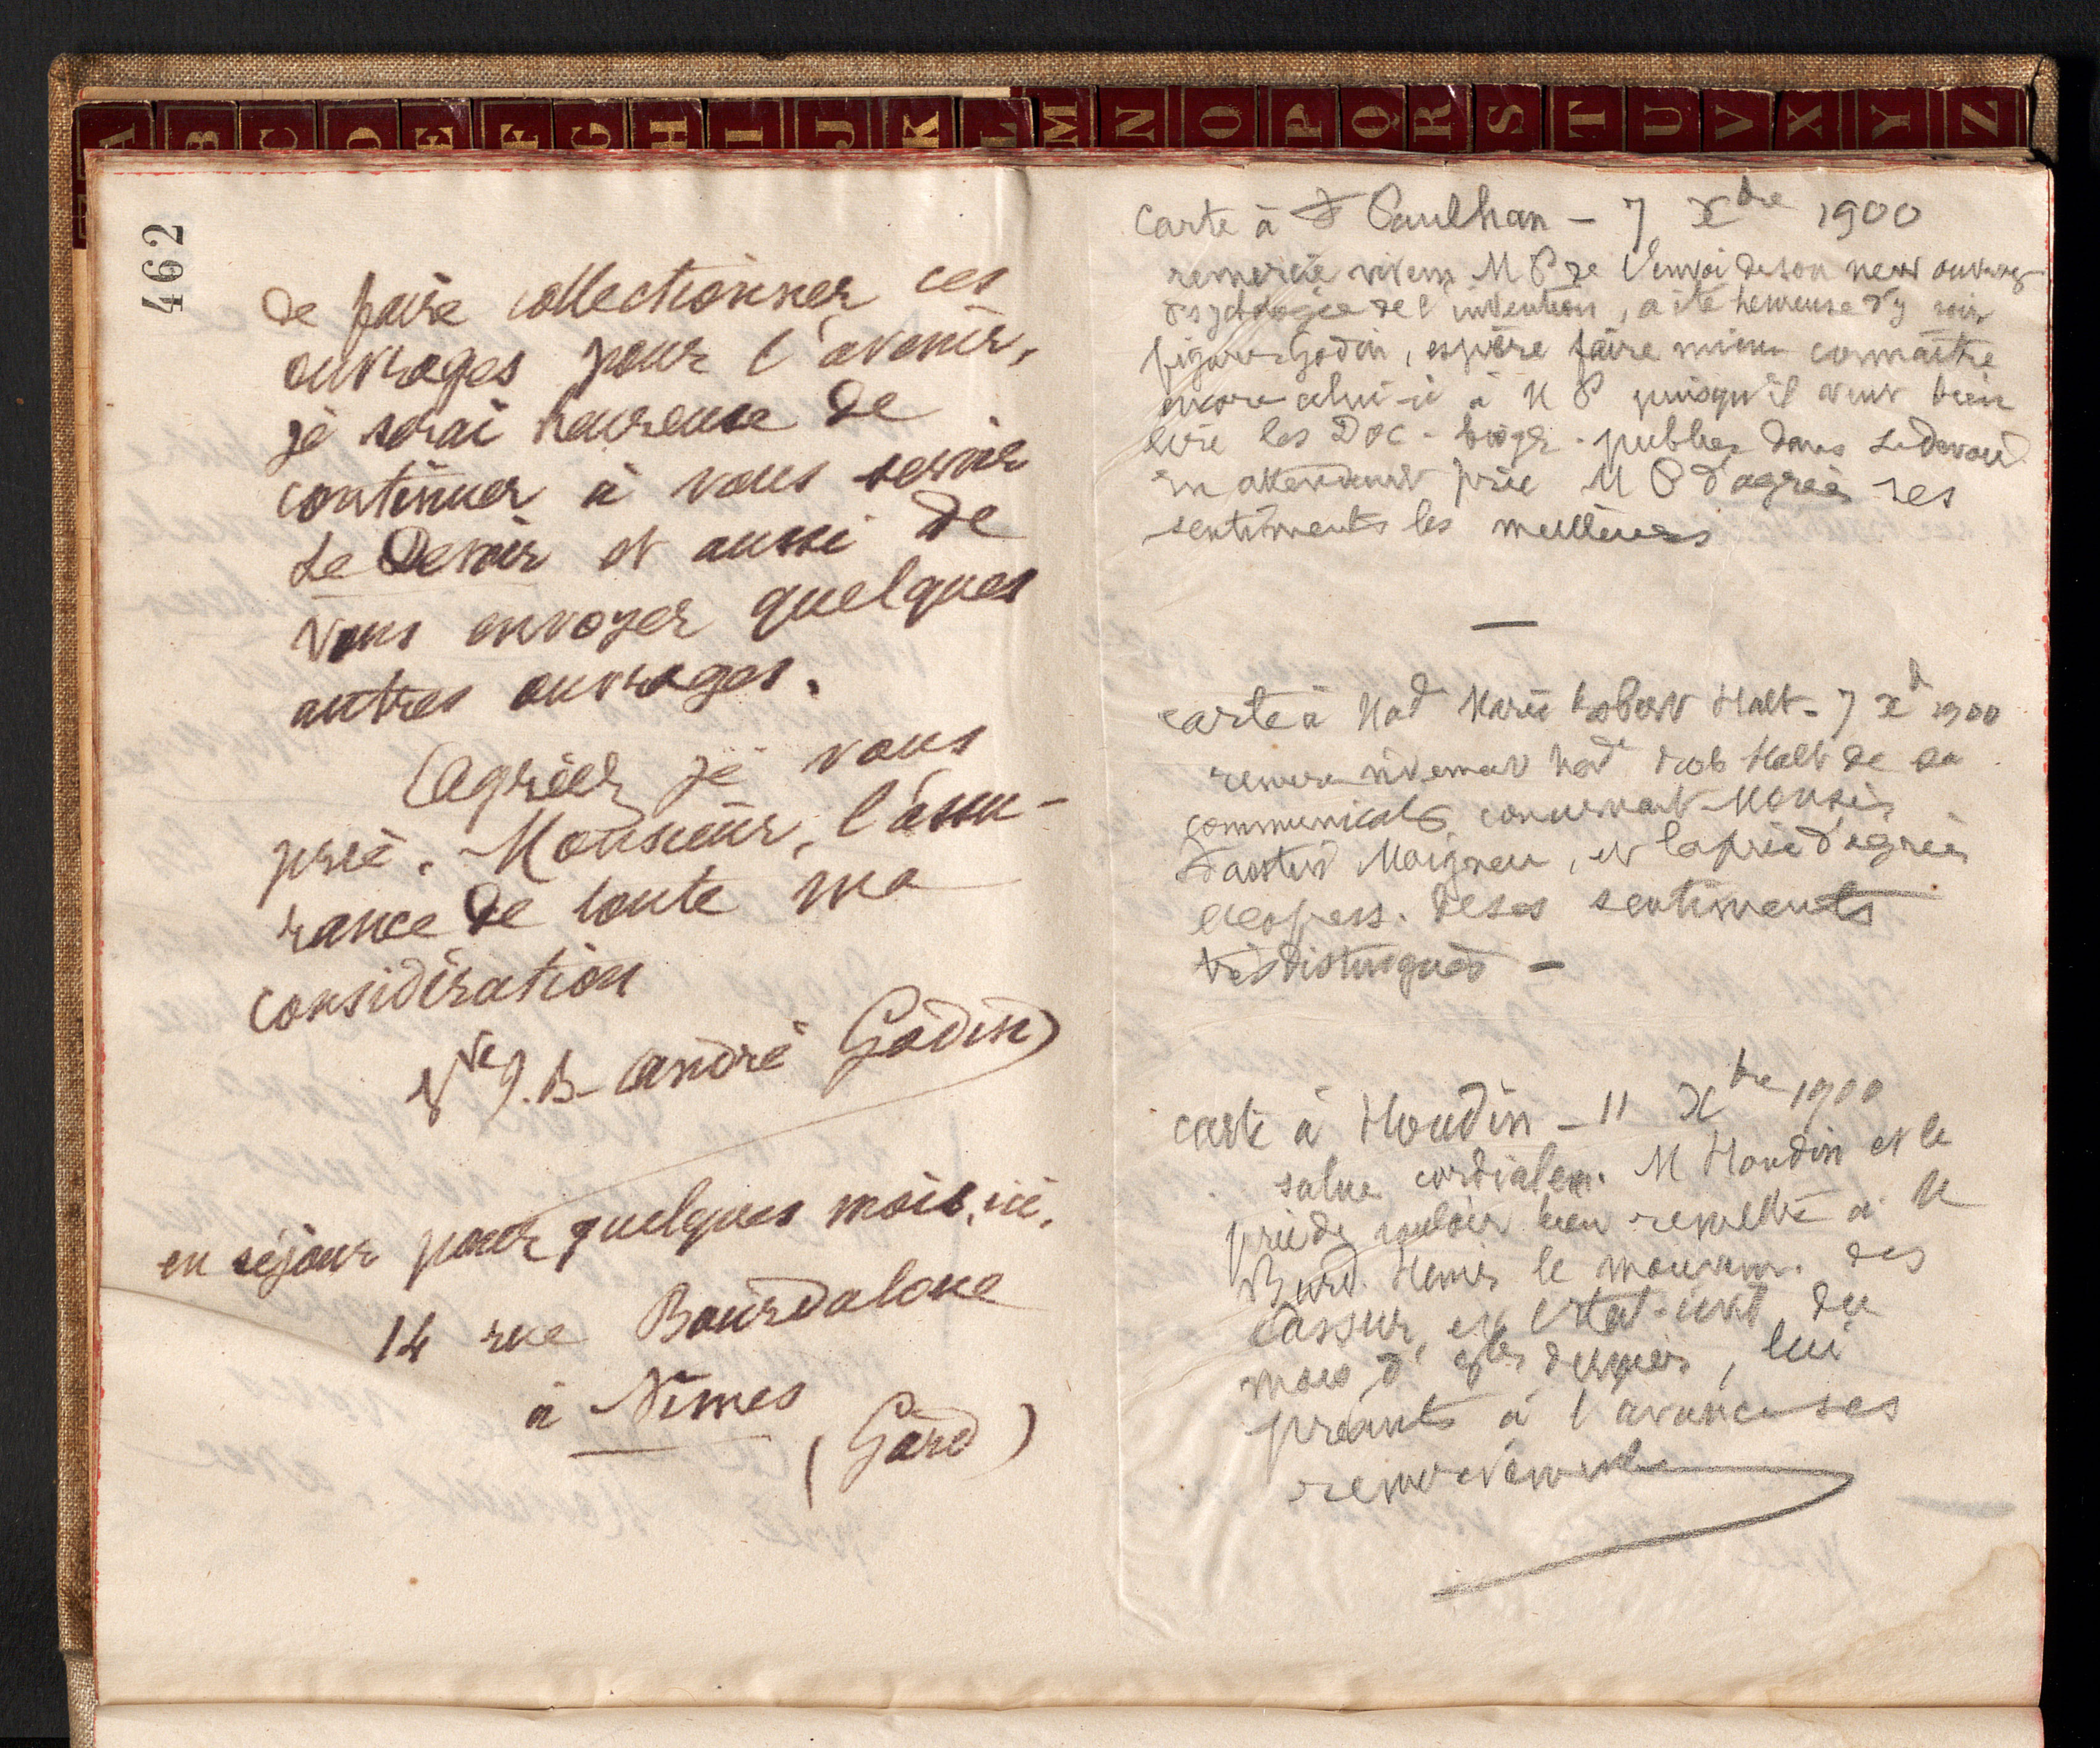 A B C D E F G H I J K L M N O P Q R S T U V X Y Z
462
de faire collectionner ces
ouvrages pour l'avenir,
je serai heureuse de
continuer à vous servir
Le Devoir et aussi de
vous envoyer quelques
autres ouvrages.
Agréer je vous
prie, Monsieur, l'assu-
rance de toute ma
considération
Vve J. B. André Godin
en séjour pour quelques mois, ici,
14 rue Bourdaloue
à Nîmes
(Gard)
Carte à F Paulhan - 7 Xbre 1900
remercie vivem M P de l'envoi de son nouv ouvrag
Psychologie de l'invention, a été heureuse d'y voir
figurer Godin, espère faire mieux connaître
encore celui-ci à M P puisqu'il veut bien
lire les Doc - biogr - publiés dans Le Devoir
en attendant prie M P d'agréer ses
sentiments les meilleurs
carte à Mad Marie Robert Halt - 7 Xb 1900
remercie vivement Mad Rob Halt de sa
communicat concernant Monsieur
Maigneu, et la prie d'agréer
l'express. de ses sentiments
très distingués -
carte à Houdin - 11 Xbre 1900
salue cordialem. M Houdin et le
prie de vouloir bien remettre à M
Bern. Henri le mouvem. des
assur, et l'Etat-civil du
mois d' 9bre dernier, lui
présente à l'avance ses
remerciements